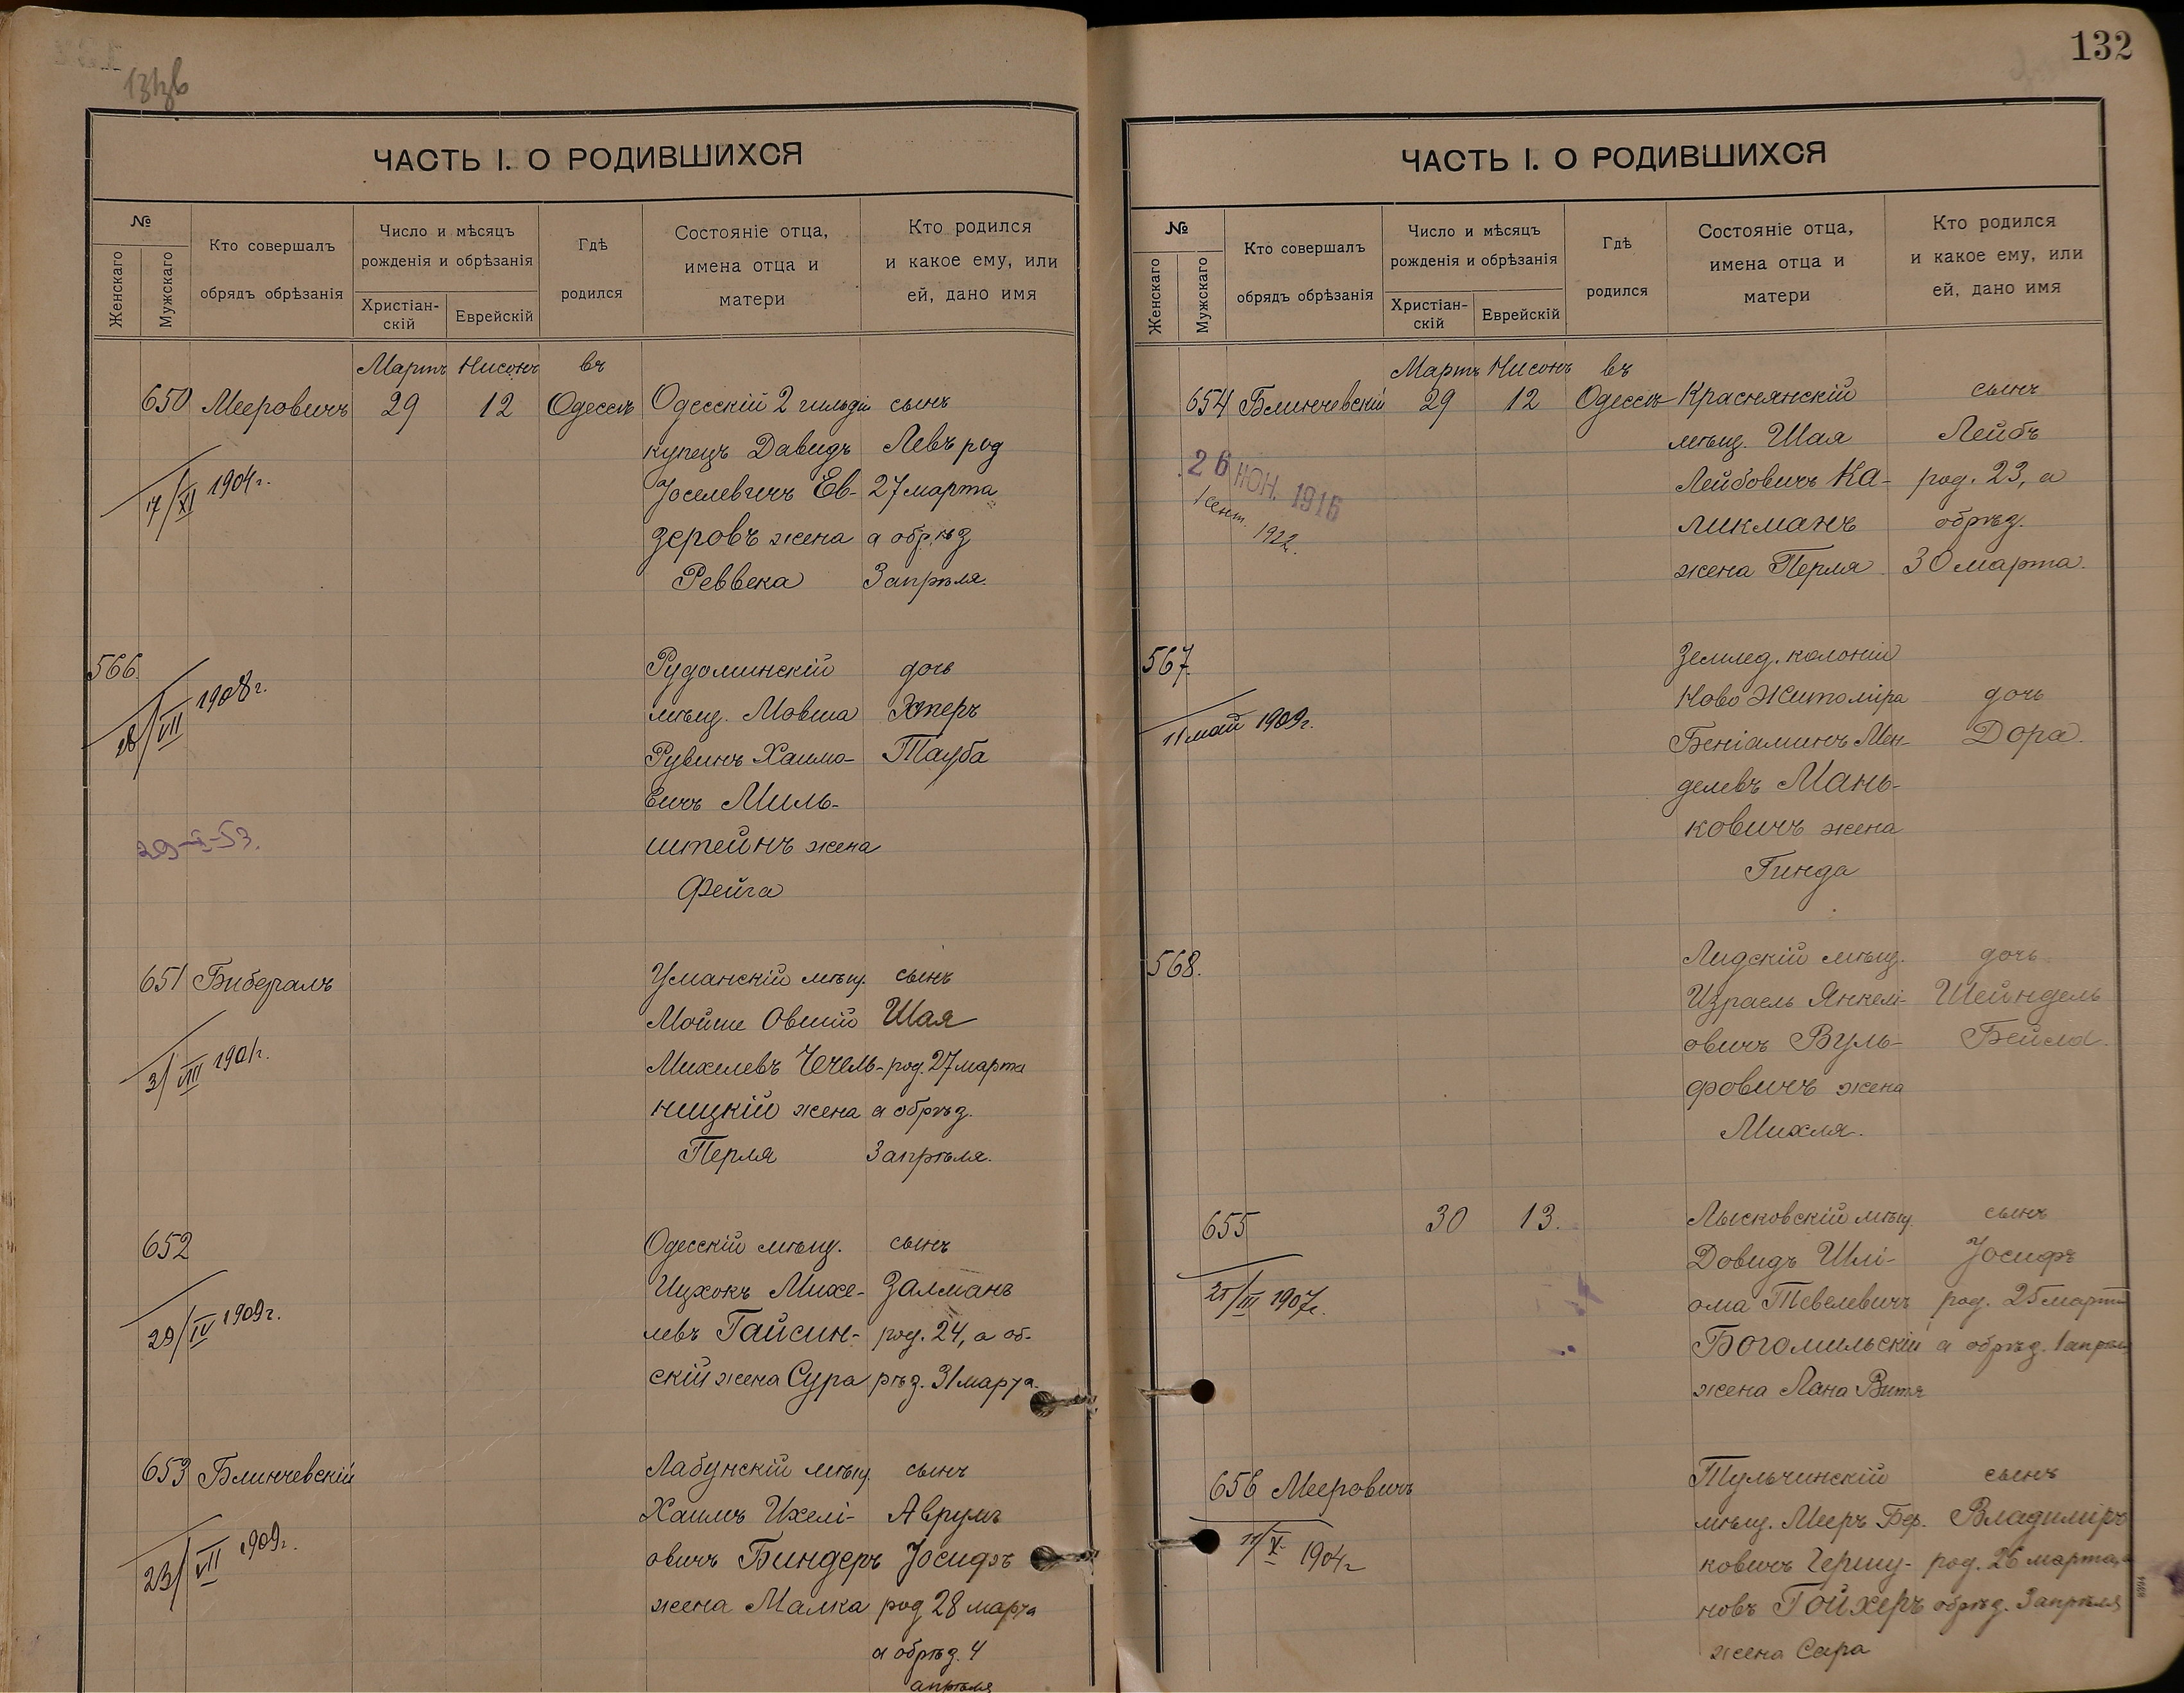 ЧАСТЬ I. О РОДИВШИХСЯ
№
Женскаго
Мужскаго
Кто совершалъ
обрядъ обрѣзанія
Число и мѣсяцъ
рожденія и обрѣзанія
Христіан-
скій
Еврейскій
Гдѣ
родился
Состояніе отца,
имена отца и
матери
Кто родился
и какое ему, или
ей, дано имя
Мартъ Нисонъ въ
650 Мееровичъ 29 12 Одессѣ Одесскій 2 гильдіи сынъ
купецъ Давидъ Левъ род
Іоселевичъ Ев- 27 марта
17/XI 1904 г.
зеровъ жена а обрѣз
Реввека 3 апрѣля.
566
Рудоминскій дочь
28/VII 1908 г.
мѣщ. Мовша Эстеръ
Рувинъ Хаимо- Тауба
вичъ Миль-
штейнъ жена
29-I-53.
Фейга
651 Бибергалъ Уманскій мѣщ. сынъ
Мойше Овший Шая
Михелевъ Чечель- род. 27 марта
3/VIII 1901 г.
ницкій жена а обрѣз.
Перля 3 апрѣля.
652 Одесскій мѣщ. сынъ
Ицхокъ Михе- Залманъ
левъ Гайсин- род. 24, а об-
29/IV 1909 г.
скій жена Сура рѣз. 31 марта.
653 Блинчевскій Лабунскій мѣщ. сынъ
Хаимъ Ихелі- Аврумъ
овичъ Биндеръ Іосифъ
23/VII 1909 г.
жена Малка род 28 марта
а обрѣз. 4
апрѣля
132
ЧАСТЬ I. О РОДИВШИХСЯ
№
Женскаго
Мужскаго
Кто совершалъ
обрядъ обрѣзанія
Число и мѣсяцъ
рожденія и обрѣзанія
Христіан-
скій
Еврейскій
Гдѣ
родился
Состояніе отца,
имена отца и
матери
Кто родился
и какое ему, или
ей, дано имя
Мартъ Нисонъ въ
654 Блинчевскій 29 12 Одессѣ Краснянскій сынъ
мѣщ. Шая Лейбъ
26 ІЮН. 1916
Лейбовичъ Ка- род. 23, а
1 сент. 1922.
ликманъ обрѣз.
жена Перля 30 марта.
567. Землед. колоніи
Ново Житоміра дочь
11 май 1909 г.
Беніаминъ Мен- Дора.
делевъ Мань-
ковичъ жена
Гинда
568. Лидскій мѣщ. дочь
Израель Янкелі- Шейндель
овичъ Вуль- Бейла.
фовичъ жена
Михля.
655 30 13. Лысковскій мѣщ. сынъ
Довидъ Шлі- Іосифъ
21/III 1907 г.
ома Тевелевичъ род. 25 марта
Богомильскій а обрѣз. 1 апрѣля
жена Лана Витя
656 Мееровичъ Тульчинскій сынъ
мѣщ. Мееръ Бер- Владиміръ
11/X 1904 г
ковичъ Гершу- род. 26 марта, а
новъ Гойхеръ обрѣз. 3 апрѣля
жена Сара